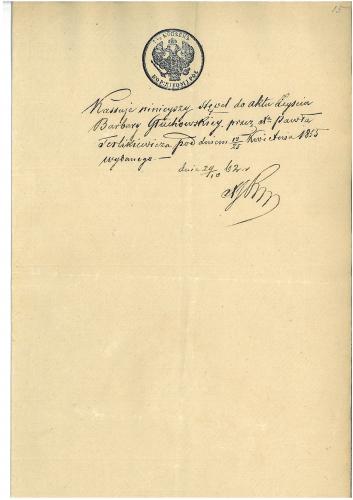 15
Kassuje niniejszy Stępel do aktu Zejścia
Barbary Głuchowskiey, przez Xa Pawła
Terlikiewicza pod dniem 13/25 Kwietnia 1855
wydanego —
dnia 29/10 62 r